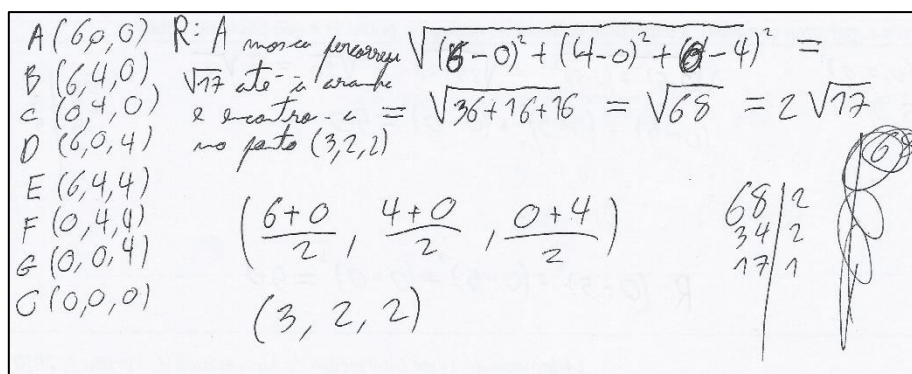 A (6,0,0)
B (6,4,0)
C (0,4,0)
D (6,0,4)
E (6,4,4)
F (0,4,4)
G (0,0,4)
O (0,0,0)
R: A mosca percorreu
√17 até à aranha
e encontra-a
no ponto (3,2,2)
√((6-0)² + (4-0)² + (0-4)²) =
= √(36+16+16) = √68 = 2√17
((6+0)/2, (4+0)/2, (0+4)/2)
(3, 2, 2)
68 | 2
34 | 2
17 | 1